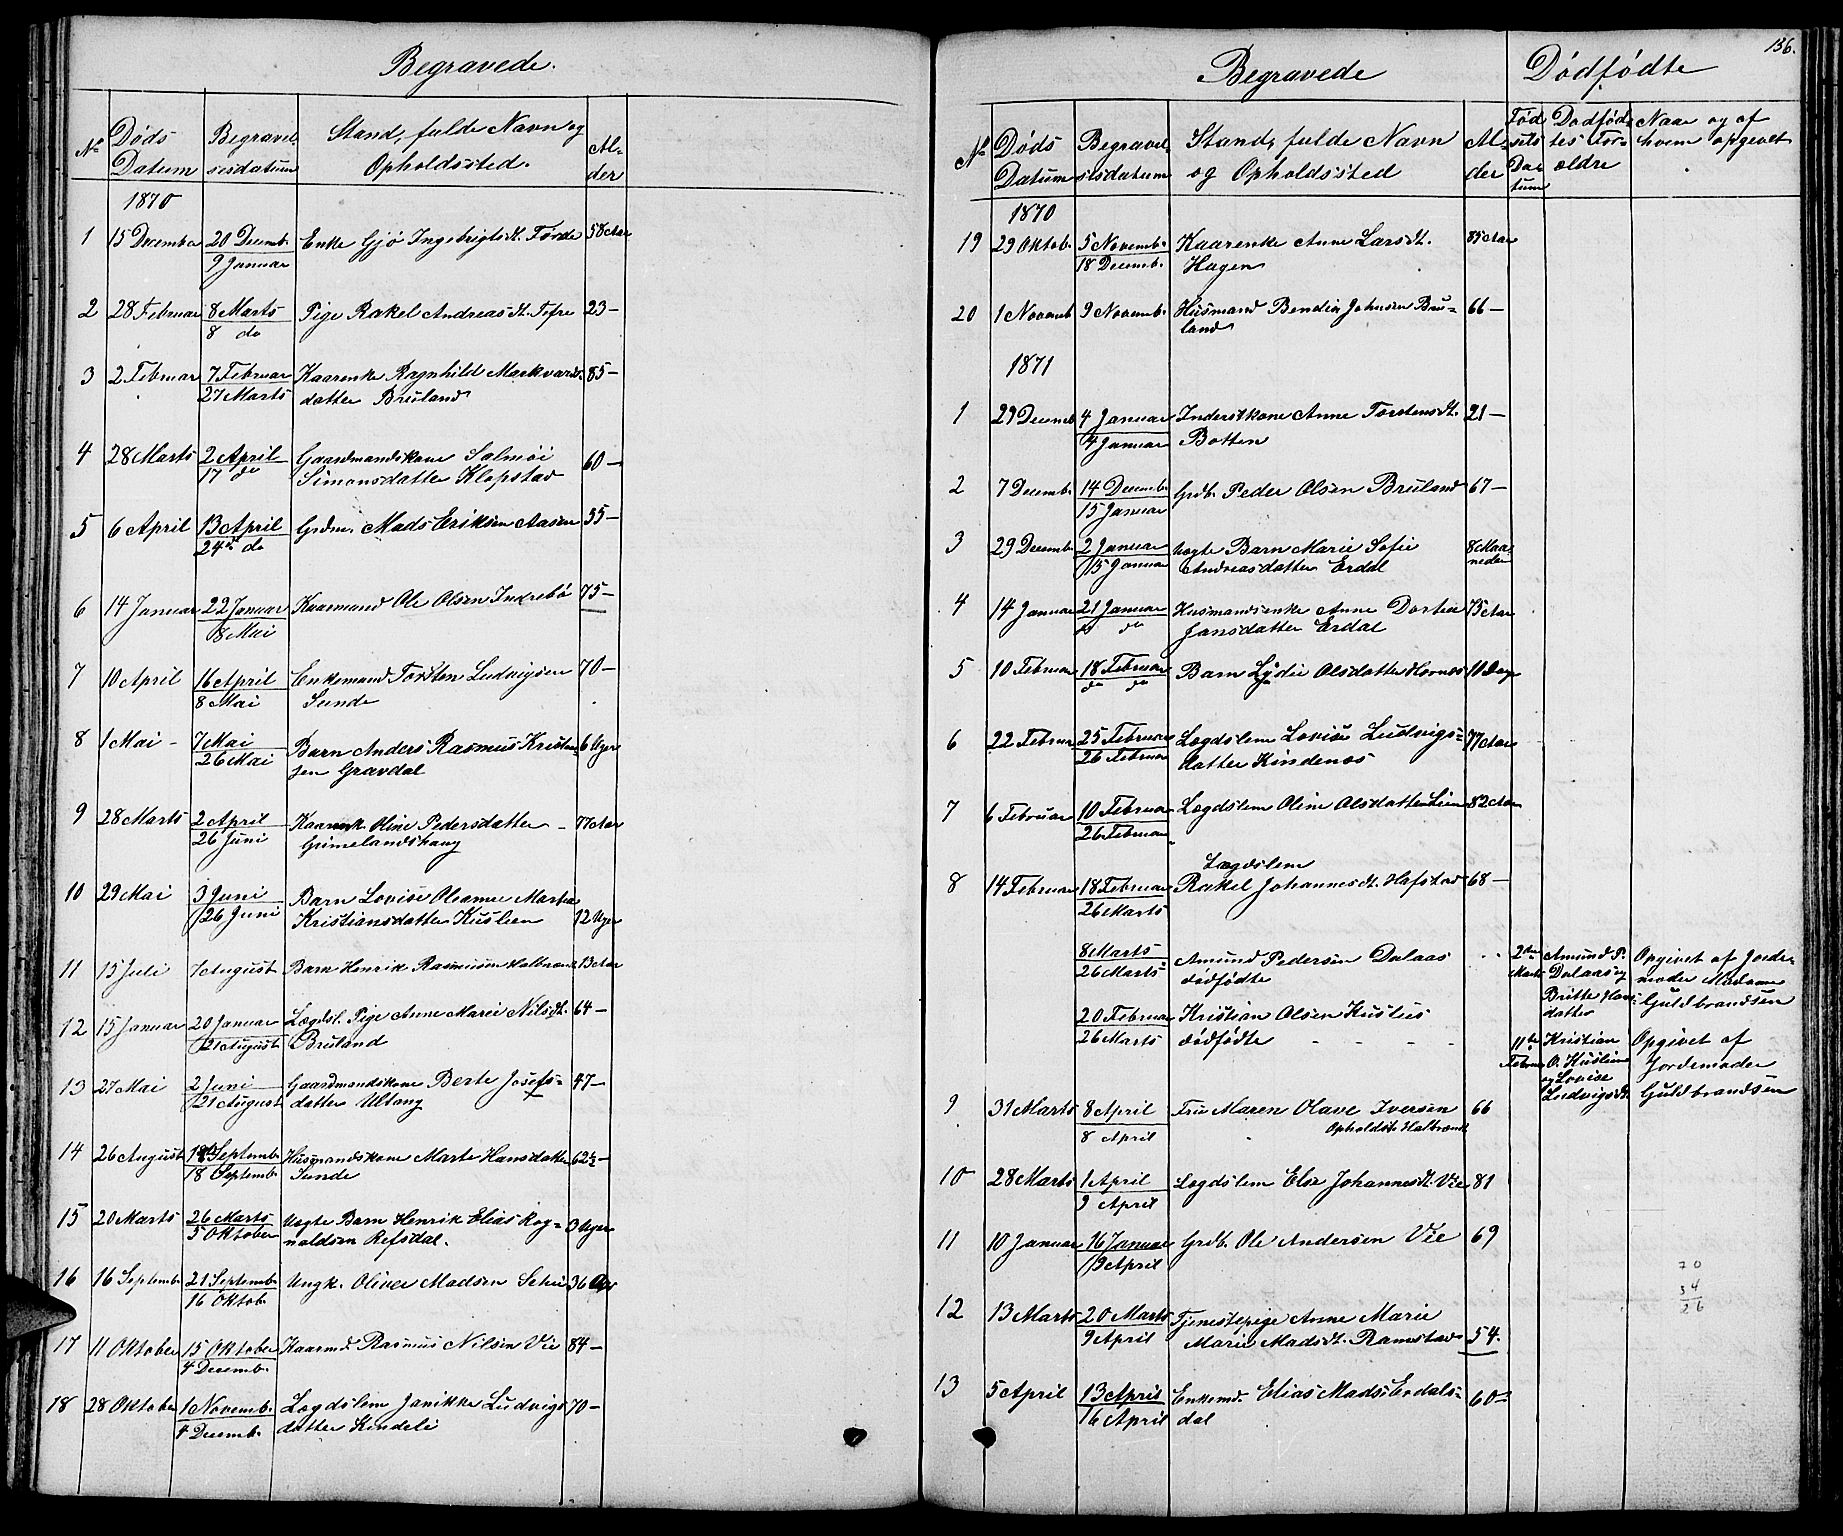 Begravede.
No Døds Datum Begravelsesdatum Stand, fulde Navn og Opholdssted. Alder
1870
1 15 December 20 Decemb. Enke Gjø Ingebrigtsdt. Førde 58 Aar
9 Januar
2 28 Februar 8 Marts Pige Rakel Andreasdt. Tefre 23 -
8 do
3 2 Februar 7 Februar Kaarenke Ragnhild Markvards- 85 -
27 Marts datter Bruland
4 28 Marts 2 April Gaardmandskone Salmøi 60 -
17 do Simonsdatter Klopstad
5 6 April 13 April Grdm. Mads Eriksen Aasen 55 -
24de do
6 14 Januar 22 Januar Kaarmand Ole Olsen Indrebø 75 -
8 Mai
7 10 April 16 April Enkemand Torsten Ludvigsen 70 -
8 Mai Sunde
8 1 Mai - 7 Mai Barn Anders Rasmus Kristen- 6 Uger
26 Mai sen Gravdal
9 28 Marts 2 April Kaarenk. Oline Pedersdatter - 77 Aar
26 Juni Grimelandshaug
10 29 Mai 3 Juni Barn Lovise Oleamu Martha
26 Juni Kristiansdatter Kuslien 12 Uger
11 15 Juli 7 August Barn Henrik Rasmussen Halbrænd 13 Aar
12 15 Januar 20 Januar Lægdsl. Pige Anne Marie Nilsdt. 64 -
21 August Bruland
13 27 Mai 2 Juni Gaardmandskone Berte Josefs- 47 -
21 August datter Ultang
14 26 August 1ste Septemb. Husmandskone Marte Hansdatter 62 1/2 -
18 Septemb. Sunde
15 20 Marts 26 Marts Uægte Barn Henrik Elias Rog- 3 Uger
5 Oktober naldsen Refsdal.
16 16 Septemb. 21 Septemb. Ungk. Oliver Madsen Schei 36 Aar
16 Oktob.
17 11 Oktober 15 Oktober Kaarmd Rasmus Nilsen Vie 84 -
4 Decemb.
18 28 Oktober 1 Novemb. Lægdslem Janikke Ludvigs 70 -
4 Decemb. datter Kindeli
136.
Begravede Dødfødte
No Døds Datum Begravelsesdatum Stand, fulde Navn og Opholdssted Alder Fødselsdatum Dødfødtes Forældre Naar og af hvem opgivet
1870
19 29 Oktob. 5 Novemb. Kaarenke Anne Larsdt. 85 Aar
18 Decemb. Hagen
20 1 Novemb 9 Novemb. Husmand Bendix Johnsen Bru- 66 -
land
1871
1 29 Decemb 4 Januar Inderstkone Anne Torstensdt. 21 -
4 Januar Botten
2 7 Decemb. 14 Decemb. Grdb. Peder Olsen Bruland 67 -
15 Januar
3 29 Decemb. 2 Januar Uægte Barn Marie Sofie 8 Maa-
15 Januar Andreasdatter Erdal neder
4 14 Januar 21 Januar Husmandsenke Anne Dortea 75 Aar
do do Jansdatter Erdal
5 10 Februar 18 Februar Barn Lydie Olsdatter Hornes 10 Dage
do do
6 22 Februar 25 Februar Lægdslem Lovise Ludvigs- 77 Aar
26 Februar datter Kindenes
7 6 Februar 10 Februar Lægdslem Oline Olsdatter Lien 82 Aar
26 Februar
Lægdslem
8 14 Februar 18 Februar Rakel Johannesdt. Hafstad 68 -
26 Marts
8 Marts Amund Pedersen Dalaas 2den Amund P. Opgivet af Jorde-
26 Marts dødfødte Marts Dalaas og moder Madame
Britte Hans- Guldbrandsen
datter
20 Februar Kristian Olsen Kuslius 11te Kristian Opgivet af
26 Marts dødfødte Februar O. Kuslien Jordemoder
og Lovise Guldbrandsen
Ludvigsdt.
9 31 Marts 8 April Fru Maren Olave Iversen 66
8 April Opholdst. Halbrænd
10 28 Marts 1 April Lægdslem Else Johannesdt. Vie 81
9 April
11 10 Januar 16 Januar Grdb. Ole Andersen Vie 69
9 April
70
34
26
12 13 Marts 20 Marts Tjenestepige Anne Marie
9 April Marie Madsdt. Ramstad 54.
13 5 April 13 April Enkemd. Elias Mads Erdals- 60 -
16 April dal